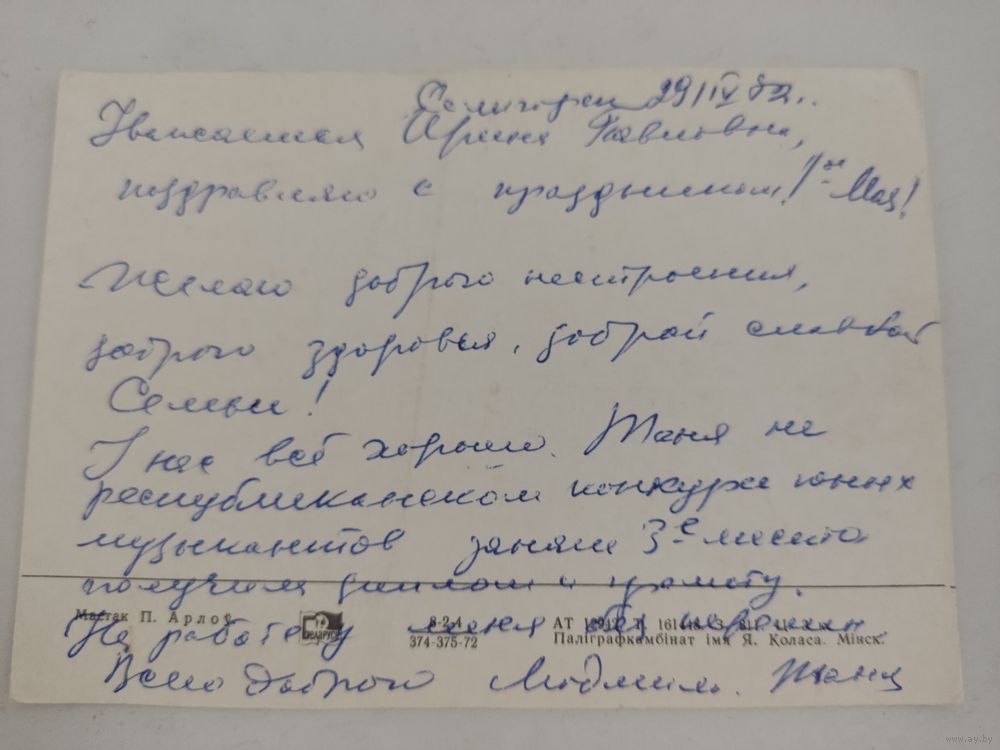 Солигорск 29/IV 82г.
Уважаемая Ирина Павловна,
поздравляю с праздником! 1ое Мая!
Желаю доброго настроения,
доброго здоровья, доброй славной
Семьи!
У нас всё хорошо. Таня на
республиканском конкурсе юных
музыкантов заняла 3-е место
получила диплом и грамоту.
Мастак П. Арлоў
БЕЛАРУСЬ
8-2-4
374-375-72
АТ
Паліграфкамбінат імя Я. Коласа. Мінск.
На работе у меня без
Всего доброго Людмила. Таня
www.ay.by